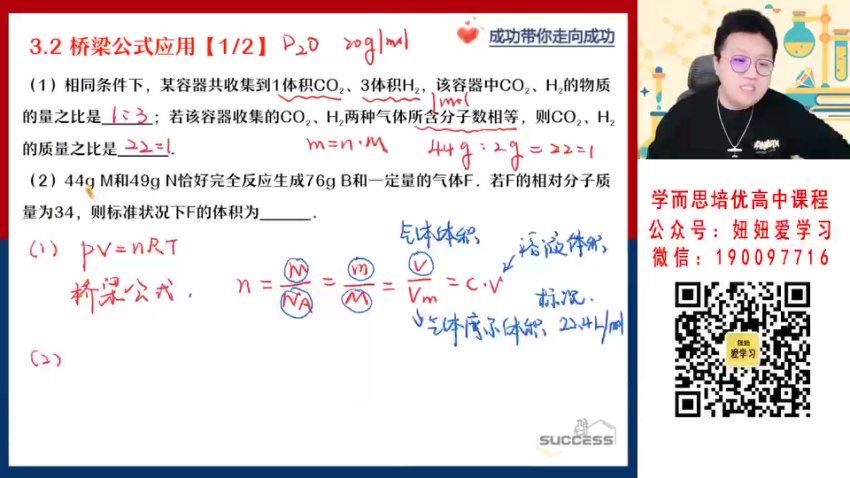 3.2 桥梁公式应用【1/2】 D₂O 20g/mol
成功带你走向成功
(1) 相同条件下，某容器共收集到1体积CO₂、3体积H₂，该容器中CO₂、H₂的物质
1mol
的量之比是 1:3 ；若该容器收集的CO₂、H₂两种气体所含分子数相等，则CO₂、H₂
的质量之比是 22:1 .
m=n·M 44g:2g=22:1
(2) 44g M和49g N恰好完全反应生成76g B和一定量的气体F．若F的相对分子质
量为34，则标准状况下F的体积为______．
(1) PV=nRT
气体体积
溶液体积
桥梁公式. n = N/NA = m/M = V/Vm = c·V
标况.
气体摩尔体积 22.4L/mol
(2)
SUCCESS
学而思培优高中课程
公众号：妞妞爱学习
微信：190097716
妞妞
爱学习